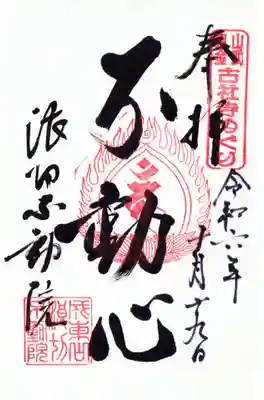 古社寺めぐり
奉拝
令和六年
十月十九日
不動心
浪切不動院
成東山
浪切
不動院